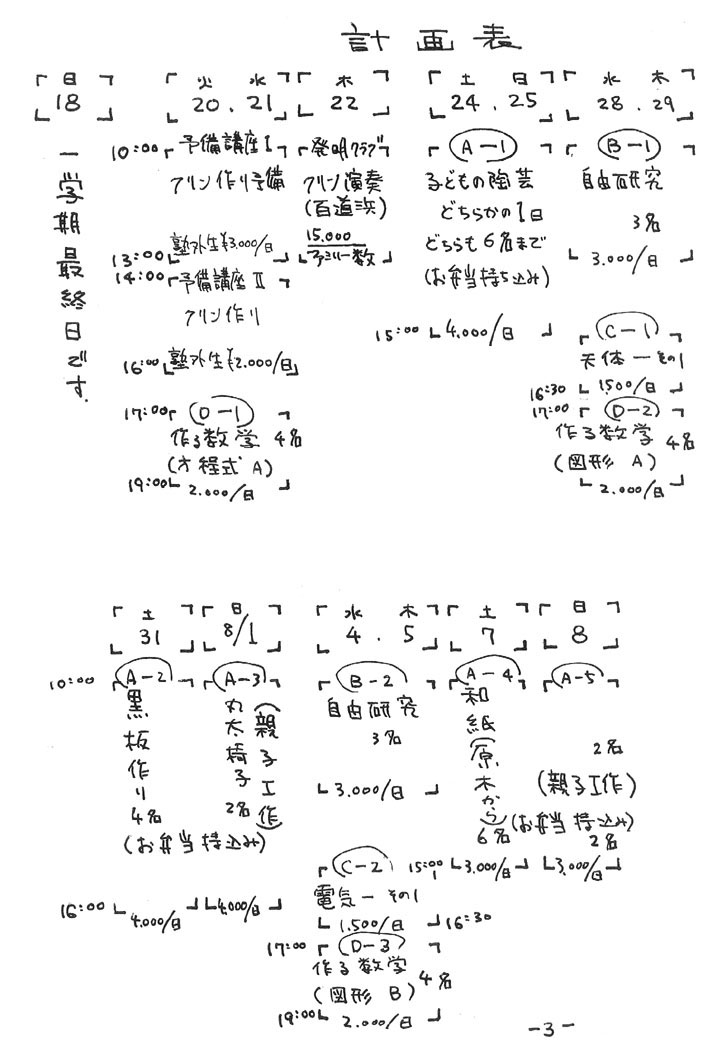 計画表
日
18
一学期最終日です.
火 水
20.21
10:00 予備講座I
アリン作り予備
13:00 塾外生¥3,000/日
14:00 予備講座II
アリン作り
16:00 塾外生¥2.000/日
17:00 D-1
作る数学 4名
(方程式 A)
19:00 2.000/日
木
22
発明クラブ
アリン演奏
(百道浜)
15.000
ファミリー数
土 日
24.25
A-1
子どもの陶芸
どちらかの1日
どちらも6名まで
(お弁当持ち込み)
15:00 4.000/日
水 木
28.29
B-1
自由研究
3名
3.000/日
C-1
天体-その1
16:30 1500/日
17:00 D-2
作る数学 4名
(図形 A)
2.000/日
土
31
10:00 A-2
黒板作り
4名
(お弁当持込み)
16:00 4.000/日
日
8/1
A-3
丸太椅子
(親子工作)
2名
4.000/日
水 木
4.5
B-2
自由研究
3名
3.000/日
C-2
電気-その1
1.500/日 16:30
17:00 D-3
作る数学 4名
(図形 B)
19:00 2.000/日
土
7
A-4
和紙(原木から)
6名
15:00 3.000/日
日
8
A-5
2名
(親子工作)
(お弁当持込み)
2名
3.000/日
-3-